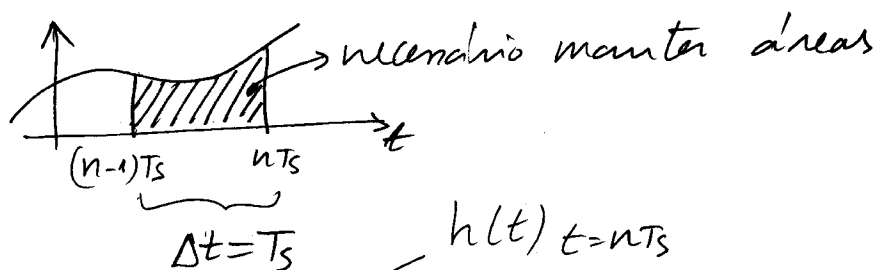 necessário manter áreas
t
(n-1)Ts nTs
Δt=Ts
h(t) t=nTs